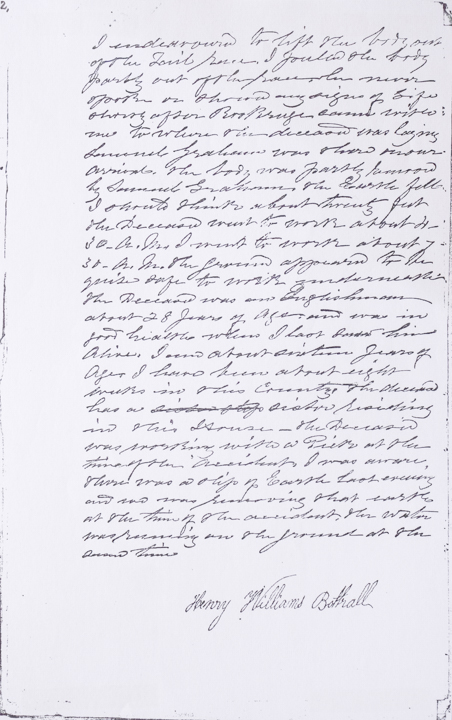 2,
I endeavoured to lift the body out
of the Tail race. I pulled the body
partly out of the race he never
spoke or showed any signs of Life
after came with
me to where the deceased was laying
Samuel Graham was there on our
arrival. the body was partly
by Samuel Graham. the Earth fell
I should think about twenty feet
the Deceased went to work about 4-
30. A.M. I went to work about 7-
30. A.M. the Ground appeared to be
quite safe to work underneath
the Deceased was an Englishman
about 28 Years of Age and was in
good health when I last saw him
Alive. I am about sixteen Years of
Age I have been about eight
weeks in this Country the deceased
has a sister residing
in this House - the Deceased
was working with a Pick at the
time of the Accident. I was aware
there was a slip of Earth last evening
and we was removing that earth
at the time of the accident. the water
was running on the ground at the
same time
Henry Williams Bothall